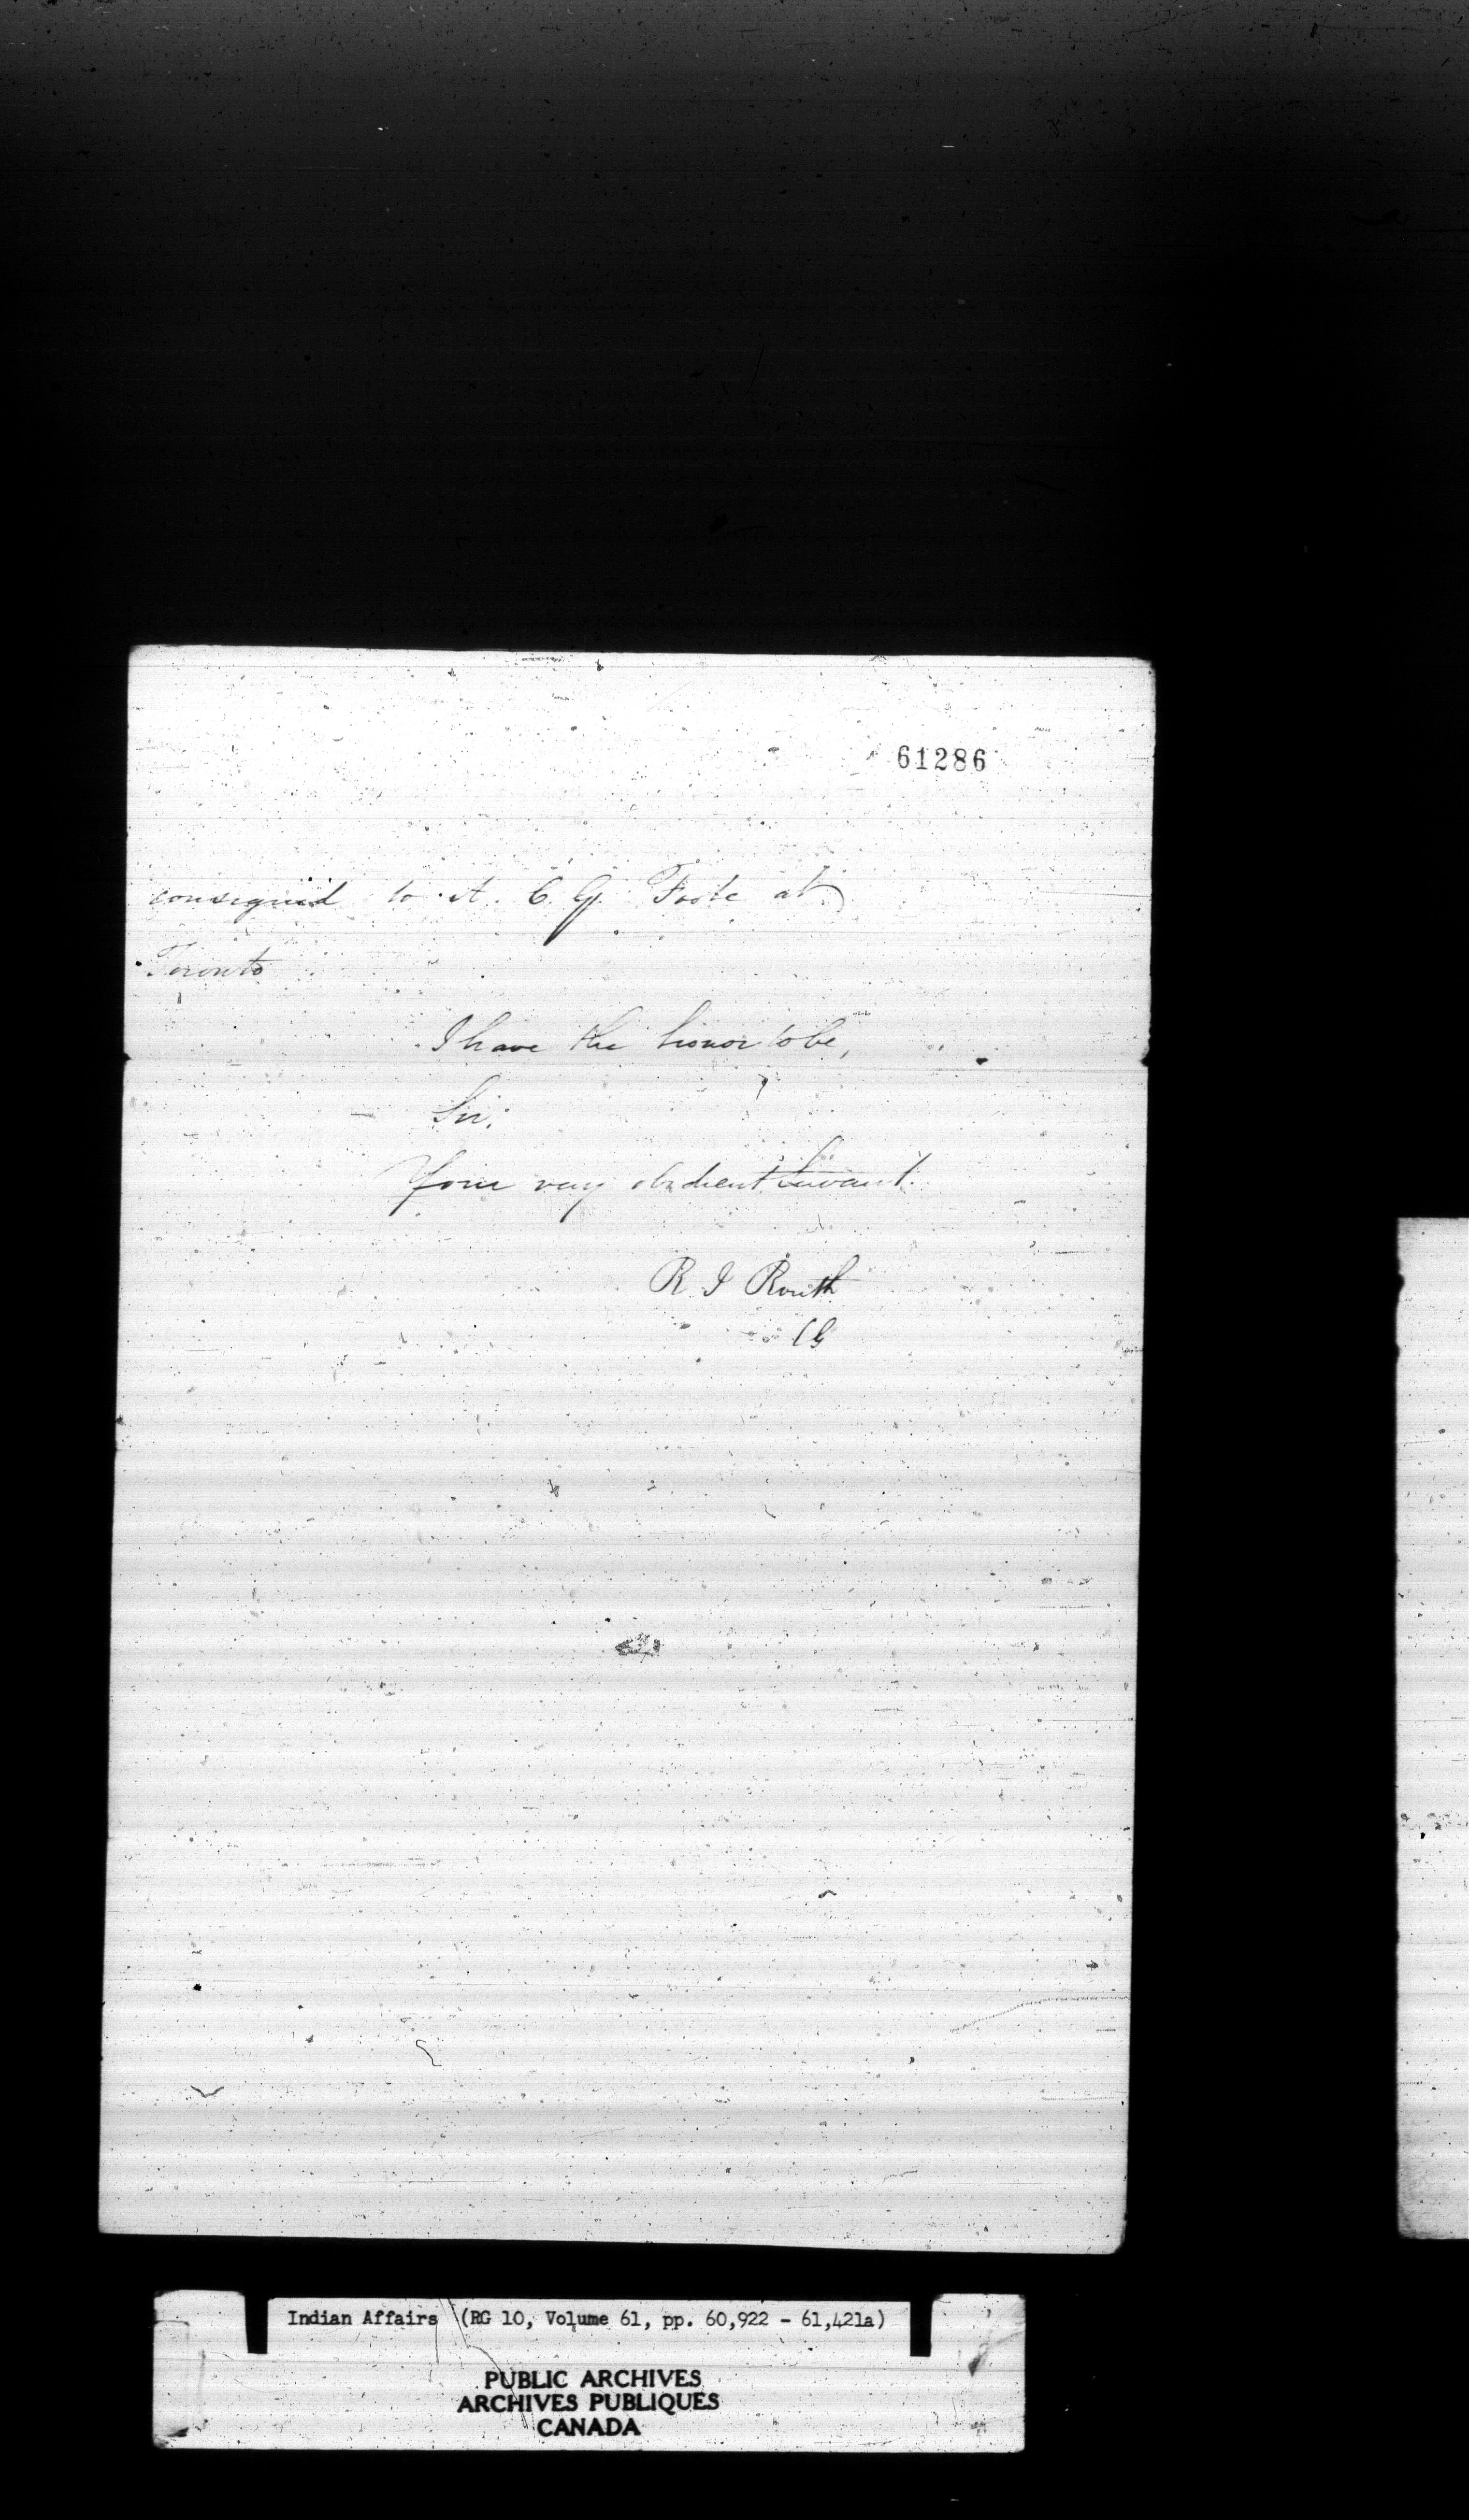 61286
consigned to A. C. G. Foote at
Toronto
I have the honor to be,
Sir,
Your very obedient Servant.
R. I Routh
CG
Indian Affairs (RG 10, Volume 61, pp. 60,922 - 61,421a)
PUBLIC ARCHIVES
ARCHIVES PUBLIQUES
CANADA